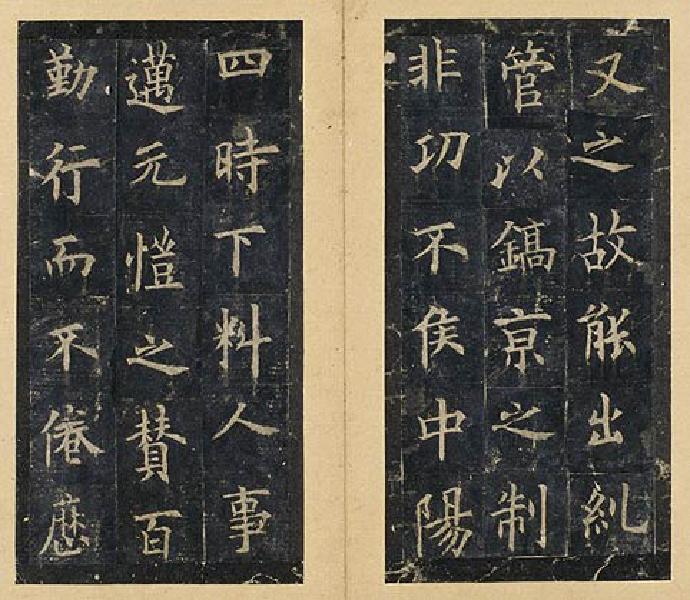 又之故能出糺
管以鎬京之制
非㓛不侯中陽
四時下料人事
邁元愷之賛百
勤行而不倦應